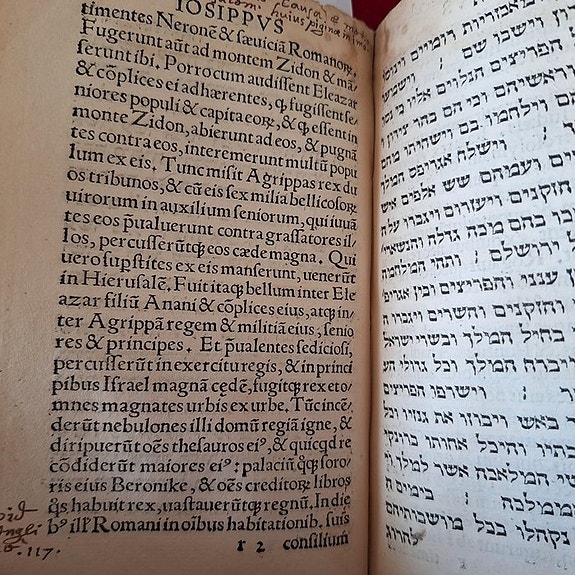 IOSIPPVS
timentes Neronē & sæuiciā Romanoꝝ.
Fugerunt aūt ad montem Zidon & mā/
serunt ibi. Porro cum audissent Eleazar
& cōplices ei adhærentes, ꝙ fugissent se/
niores populi & capita eoꝝ, & ꝙ essent in
monte Zidon, abierunt ad eos, & pugnā
tes contra eos, interemerunt multū popu
lum ex eis. Tunc misit Agrippas rex du
os tribunos, & cū eis sex milia bellicosoꝝ
uirorum in auxilium seniorum, qui iuuā
tes eos p̄ualuerunt contra grassatores il/
los, percusserūtqꝫ eos cæde magna. Qui
uero supstites ex eis manserunt, uenerūt
in Hierusalē. Fuit itaqꝫ bellum inter Ele
azar filiū Anani & cōplices eius, atqꝫ in/
ter Agrippā regem & militiā eius, senio
res & principes. Et p̄ualentes sediciosi,
percusserūt in exercitu regis, & in princi
pibus Israel magnā cędē, fugitqꝫ rex et o/
mnes magnates urbis ex urbe. Tūc incē/
derūt nebulones illi domū regiā igne, &
diripuerūt oēs thesauros eiꝰ, & quicqd re
cōdiderūt maiores eiꝰ: palaciū qꝫ soro/
ris eius Beronike, & oēs creditoꝝ libros
qs habuit rex, uastauerūtqꝫ regnū. In die
bꝰ illꝭ Romani in oībus habitationib. suis
r 2 consilium
117.
רומיים
וישבו שם :
הפריצים הנלוים אליו כי
וראשיהם וכי הם בהר
הם וילחמו בם וישחיתו מהם
: וישלח אגריפס המלך
ועמהם שש אלפים איש
הזקנים ויעזרום ויגברו על
בהם מכה גדולה
ירושלים : ותהי המלחמה
ענני והפריצים ובין
והזקנים והשרים ויגברו
בחיל המלך ובשרי ישראל
ויברח המלך וכל גדולי
: וישרפו הפריצים
באש ויבוזו את גנזיו וכל
והיכל אחותו
המלאכה אשר למלך
: בימים
נקהלו בכל מושבותיהם
להרוג